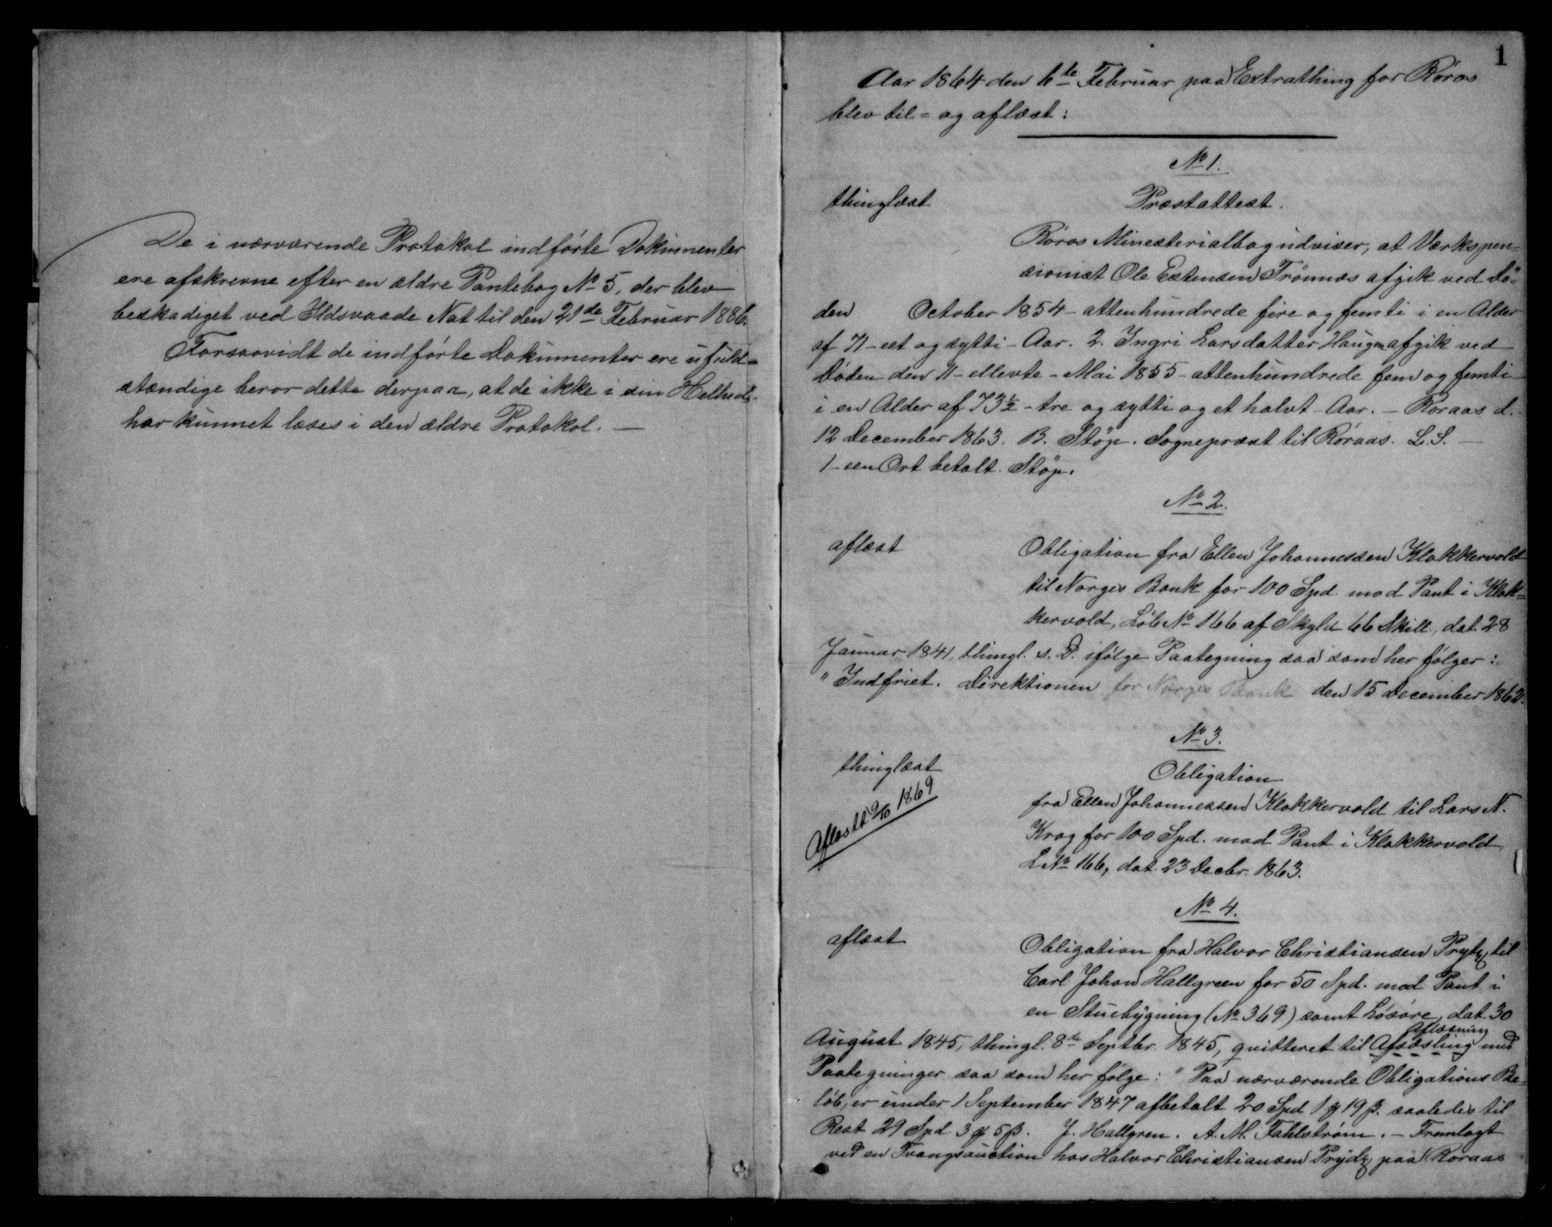 De i nærværende Protokol indførte Dokumenter
ere afskrevne efter en ældre Pantebog No 5, der blev
beskadiget ved Ildsvaade Nat til den 21de Februar 1886.
Forsaavidt de indførte Dokumenter ere ufuld=
stændige beror dette derpaa, at de ikke i sin Helhed
har kunnet læses i den ældre Protokol. —
1
Aar 1864 den 6te Februar paa Extrathing for Røros
blev til= og aflæst:
No 1.
thinglæst Præstattest.
Røros Ministerialbog udviser, at Værkspen=
sionist Ole Estensen Trønnes afgik ved Dö=
den October 1854 - attenhundrede fire og femti i en Alder
af 71 - eet og sytti - Aar. 2. Ingri Larsdatter Haugen afgik ved
Døden den 11 - ellevte - Mai 1855 - attenhundrede fem og femti -
i en Alder af 73½ - tre og sytti og et halvt - Aar. - Röraas d.
12 December 1863. B. Støp. Sognepræst til Røraas. L.S. —
1 - een Ort betalt. Støp.
No 2.
aflæst Obligation fra Ellen Johannessen Klokkervold
til Norges Bank for 100 Spd mod Pant i Klok=
kervold, Løb No 166 af Skyld 66 Skill, dat. 28
Januar 1841, thingl. s. D. ifølge Paategning saa som her følger:
" Indfriet. Direktionen for Norges Bank den 15 December 1862.
No 3.
thinglæst Obligation
Aflæst 9/10 1869
fra Ellen Johannessen Klokkervold til Lars N.
Krog for 100 Spd. mod Pant i Klokkervold,
L No 166, dat. 23 Decbr. 1863.
No 4.
aflæst Obligation fra Halvor Christiansen Prytz til
Carl Johan Hallgreen for 50 Spd. mod Pant i
en Stuebygning (No 369) samt Løsøre, dat. 30
Aflæsning
August 1845, thingl. 8de Septbr. 1845, qvitteret til Afsæsling med
Paategninger saa som her følge: " Paa nærværende Obligations Be=
løb, er under 1 September 1847 afbetalt 20 Spd 1 19 β. saaledes til
Rest 29 Spd. 3 5 β. J. Hallgren. A. M. Fahlstrøm. - Fremlagt
ved en Tvangsauction hos Halvor Christiansen Prydz paa Roraas